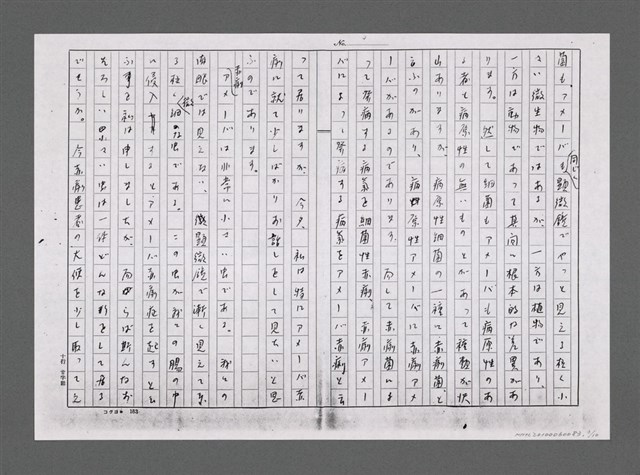 No.
菌も、アメーバも同じく顕微鏡でやっと見える極く小
さい微生物ではあるが、一方は植物であり、
一方は動物であって其間に根本的な差異があ
ります。然して細菌もアメーバも病原性のあ
る者も病原性の無いものとがあって種類が沢
山ありますが、病原性細菌の一種に赤痢菌と
云ふのがあり、病原性アメーバに赤痢アメ
ーバがあるのであります。而して赤痢菌によ
って発病する病気を細菌性赤痢、赤痢アメー
バによって発病する病気をアメーバ赤痢と云
って居りますが、今夕、私は特にアメーバ赤
痢に就て少しばかりお話しをして見たいと思
ふのであります。
赤痢アメーバは非常に小さい虫である。我々の
肉眼では見えない、顕微鏡で漸く見えて来
る極く微細な虫である。この虫が我々の腸の中
に侵入するとアメーバ赤痢症を起すと云
ふ事を私は申しましたが、而らば斯んなお
そろしい小さい虫は一体どんな形をして居る
でせうか。今赤痢患者の大便を少し取ってス
コクヨ 163
十行 廿字詰